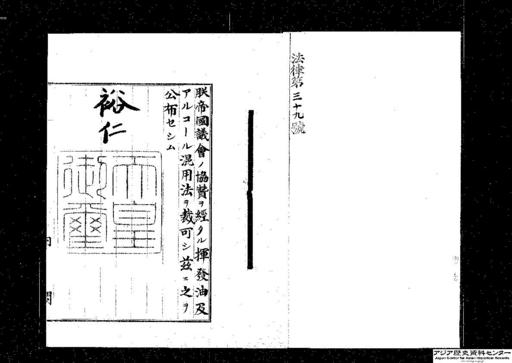 法律第三十九號
朕帝國議會ノ協贊ヲ經タル揮發油及
アルコール混用法ヲ裁可シ茲ニ之ヲ
公布セシム
裕仁
天皇
御璽
内閣
アジア歴史資料センター
Japan Center for Asian Historical Records